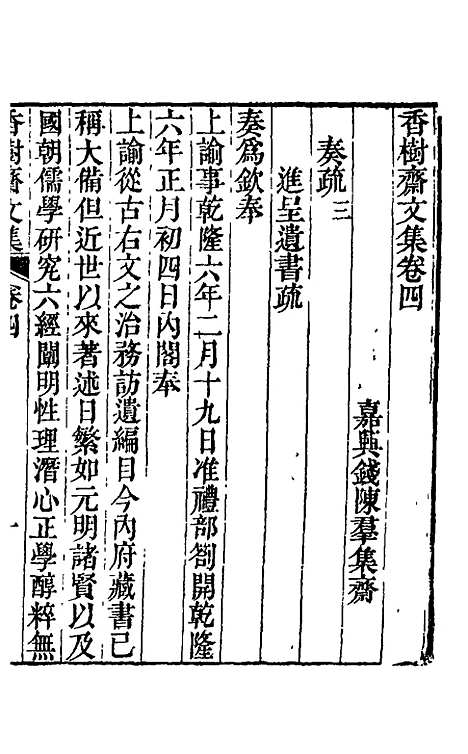 香樹齋文集卷四
嘉興錢陳羣集齋
奏疏三
進呈遺書疏
奏爲欽奉
上諭事乾隆六年二月十九日准禮部劄開乾隆
六年正月初四日內閣奉
上諭從古右文之治務訪遺編目今內府藏書已
稱大備但近世以來著述日繁如元明諸賢以及
國朝儒學研究六經闡明性理潛心正學醇粹無
香樹齋文集 卷四 一